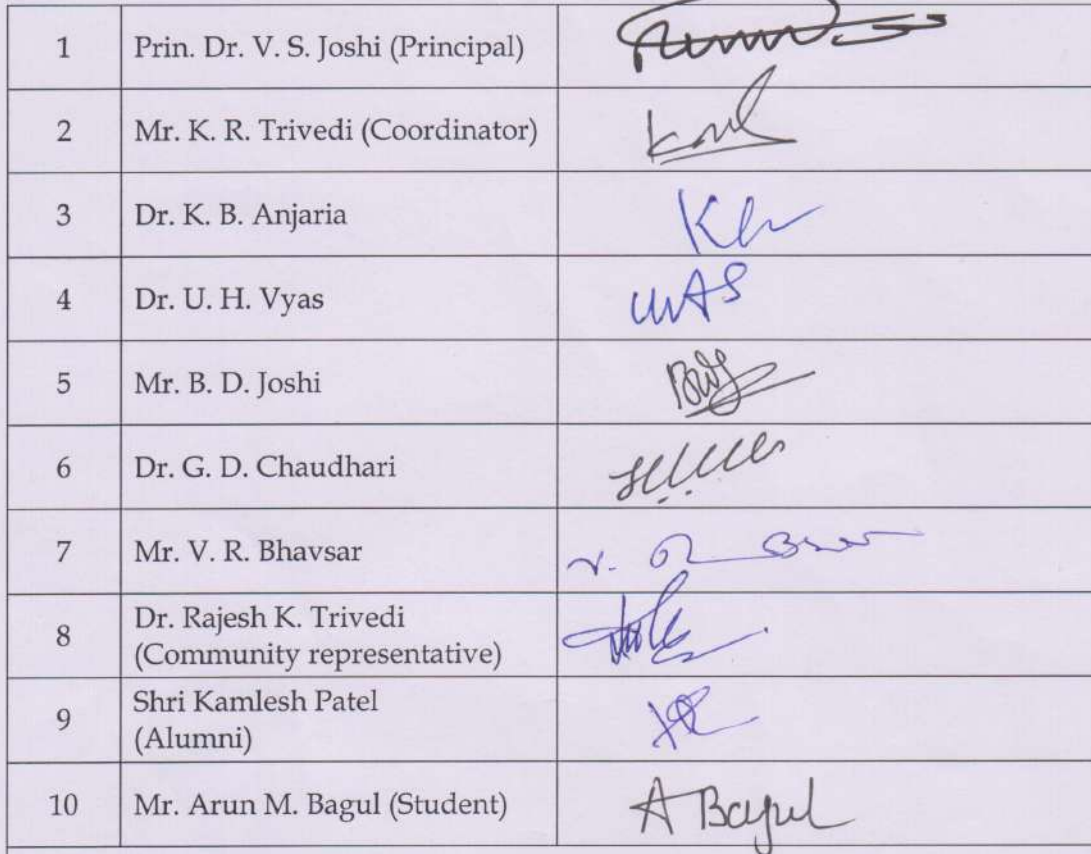 1 Prin. Dr. V. S. Joshi (Principal)
2 Mr. K. R. Trivedi (Coordinator)
3 Dr. K. B. Anjaria
4 Dr. U. H. Vyas
5 Mr. B. D. Joshi
6 Dr. G. D. Chaudhari
7 Mr. V. R. Bhavsar
8 Dr. Rajesh K. Trivedi
(Community representative)
9 Shri Kamlesh Patel
(Alumni)
10 Mr. Arun M. Bagul (Student) A Bagul